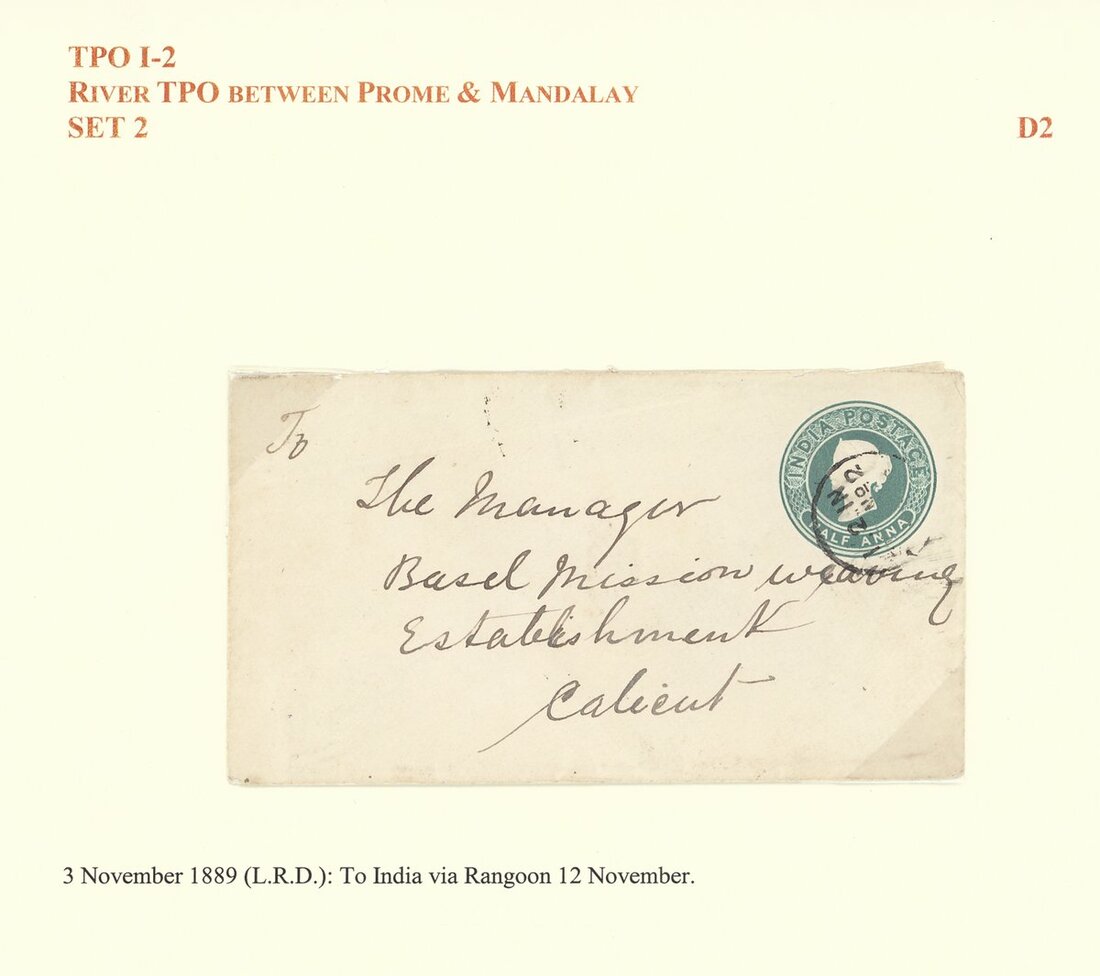 TPO I-2
RIVER TPO BETWEEN PROME & MANDALAY
SET 2
D2
INDIA POSTAGE
HALF ANNA
To
The Manager
Basel Mission weaving
Establishment
Calicut
3 November 1889 (L.R.D.): To India via Rangoon 12 November.